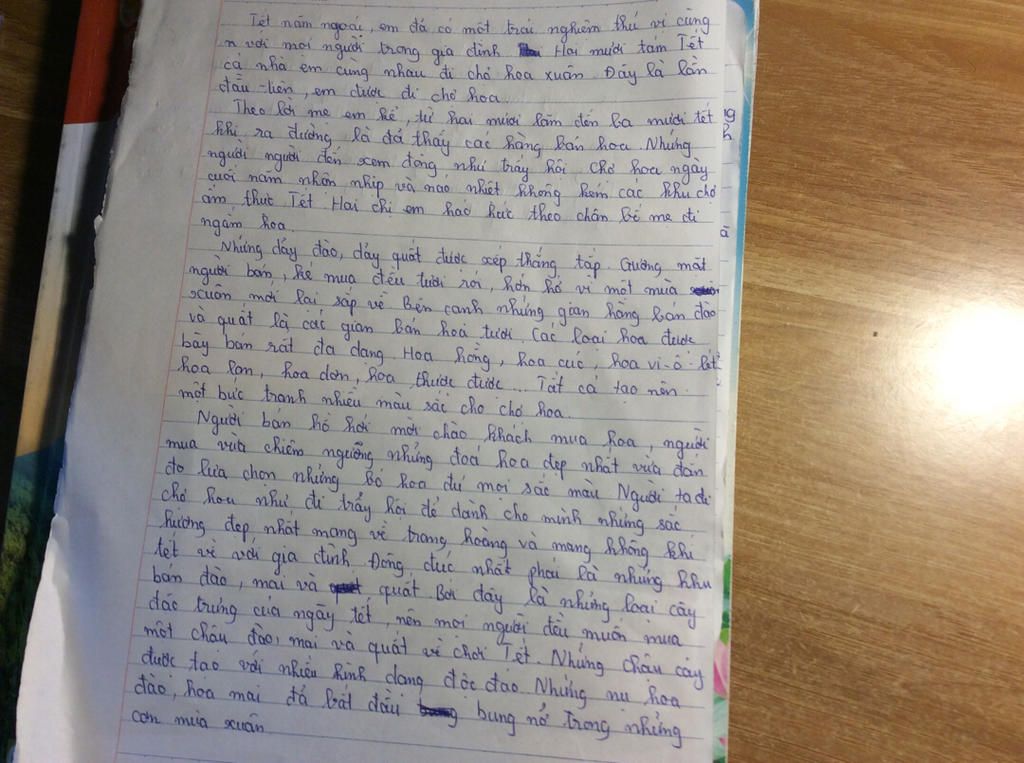 Tết năm ngoái, em đã có một trải nghiệm thú vị cùng
n với mọi người trong gia đình Hai mươi tám Tết
cả nhà em cùng nhau đi chợ hoa xuân. Đây là lần
đầu tiên, em được đi chợ hoa.
Theo lời mẹ em kể, từ hai mươi lăm đến ba mươi tết
khi ra đường là đã thấy các hàng bán hoa. Những
người người đến xem đông như trảy hội. Chợ hoa ngày
cuối năm nhộn nhịp và náo nhiệt không kém các khu chợ
ẩm thực Tết. Hai chị em háo hức theo chân bố mẹ đi
ngắm hoa.
Những dãy đào, dãy quất được xếp thẳng tắp. Gương mặt
người bán, kẻ mua đều tươi rói, hớn hở vì một mùa
xuân mới lại sắp về Bên cạnh những gian hàng bán đào
và quất là các gian bán hoa tươi. Các loại hoa được
bày bán rất đa dạng. Hoa hồng, hoa cúc, hoa vi-ô-lét
hoa lan, hoa đơn, hoa thược dược ... Tất cả tạo nên
một bức tranh nhiều màu sắc cho chợ hoa.
Người bán hồ hởi mời chào khách mua hoa, người
mua vừa chiêm ngưỡng những đoá hoa đẹp nhất vừa đắn
đo lựa chọn những bó hoa đủ mọi sắc màu Người ta đi
chợ hoa như đi trẩy hội để dành cho mình những sắc
hương đẹp nhất mang về trang hoàng và mang không khí
tết về với gia đình Đông đúc nhất phải là những khu
bán đào, mai và quất. Bởi đây là những loại cây
đặc trưng của ngày tết, nên mọi người đều muốn mua
một chậu đào, mai và quất về chơi Tết. Những chậu cây
được tạo với nhiều hình dạng độc đáo Những nụ hoa
đào, hoa mai đã bắt đầu bung nở trong những
cơn mưa xuân